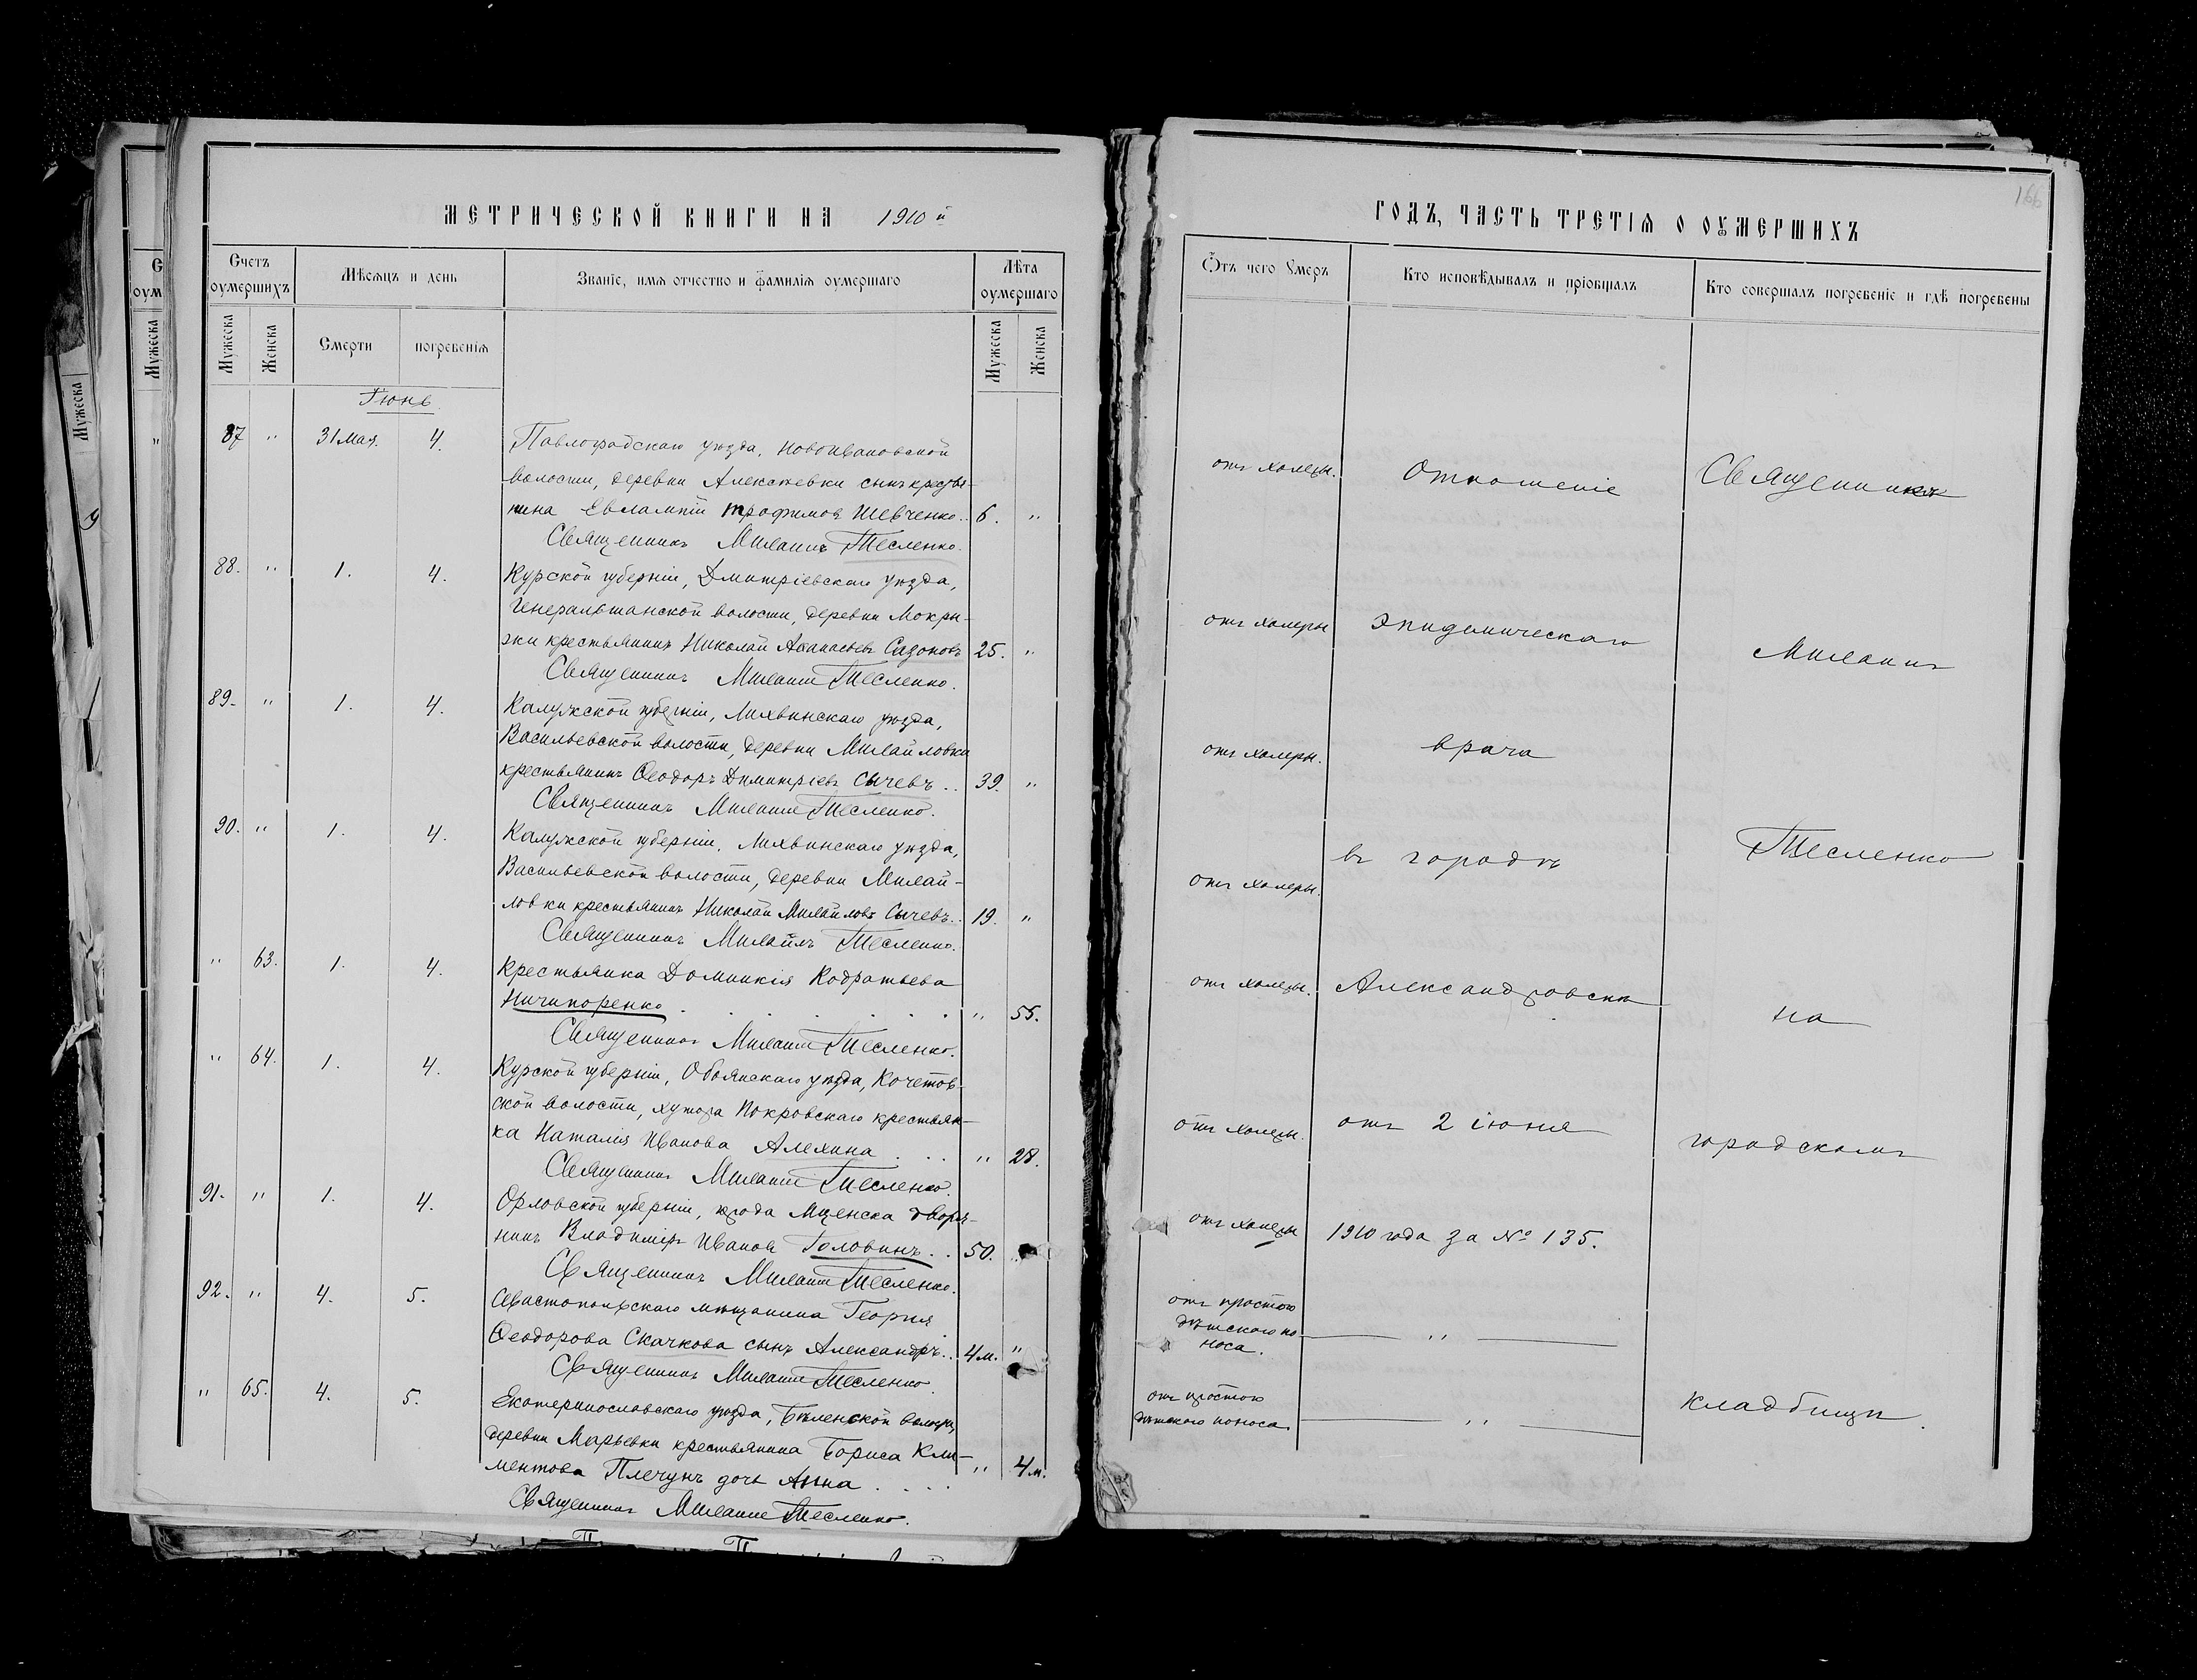 МЕТРИЧЕСКОЙ КНИГИ НА 1910 й
Счетъ оумершихъ
Мѣсяцъ и день
Званіе, имя отчество и фамилія оумершаго
Лѣта оумершаго
Мужеска
Женска
Смерти
погребенія
Мужеска
Женска
Іюнь
87 " 31 Мая. 4. Павлоградскаго уѣзда, Новоивановской
волости, деревни Алексѣевки сынъ крестья-
нина Евлампій Трофимовъ Шевченко.. 6. "
Священникъ Михаилъ Тесленко.
88. " 1. 4. Курской губерніи, Дмитріевскаго уѣзда,
Генеральшанской волости, деревни Мокры-
жки крестьянинъ Николай Аѳанасьевъ Сазоновъ 25. "
Священникъ Михаилъ Тесленко.
89. " 1. 4. Калужской губерніи, Лихвинскаго уѣзда,
Васильевской волости, деревни Михайловки
крестьянинъ Ѳеодоръ Димитріевъ Сычевъ.. 39. "
Священникъ Михаилъ Тесленко.
90. " 1. 4. Калужской губерніи, Лихвинскаго уѣзда,
Васильевской волости, деревни Михай-
ловки крестьянинъ Николай Михайловъ Сычевъ.. 19. "
Священникъ Михаилъ Тесленко.
" 63. 1. 4. Крестьянка Домникія Кодратьева
Ничипоренко . . . . . . " 55.
Священникъ Михаилъ Тесленко.
" 64. 1. 4. Курской губерніи, Обоянскаго уѣзда, Кочетов-
ской волости, хутора Покровскаго крестьян-
ка Наталія Иванова Алехина . . . " 28.
Священникъ Михаилъ Тесленко.
91. " 1. 4. Орловской губерніи, города Мценска дворя-
нинъ Владиміръ Ивановъ Головинъ.. 50. "
Священникъ Михаилъ Тесленко.
92. " 4. 5. Севастопольскаго мѣщанина Георгія
Ѳеодорова Скачкова сынъ Александръ.. 4 м. "
Священникъ Михаилъ Тесленко.
" 65. 4. 5. Екатеринославскаго уѣзда, Бѣленской волости,
деревни Марьевки крестьянина Бориса Кли-
ментова Плечунъ дочь Анна . . . . " 4 м.
Священникъ Михаилъ Тесленко.
166
ГОДЪ, ЧАСТЬ ТРЕТІЯ О ОУМЕРШИХЪ
Ѿтъ чего Умеръ
Кто исповѣдывалъ и пріобщалъ
Кто совершалъ погребеніе и гдѣ погребены
отъ холеры. Отношеніе Священникъ
отъ холеры эпидемическаго Михаилъ
отъ холеры. врача
въ городѣ Тесленко
отъ холеры.
отъ холеры. Александровскѣ на
отъ холеры. отъ 2 іюня городскомъ
отъ холеры 1910 года за № 135.
отъ простого
дѣтскаго по- "
носа.
отъ простого кладбищѣ.
дѣтскаго поноса. "
Мужеска